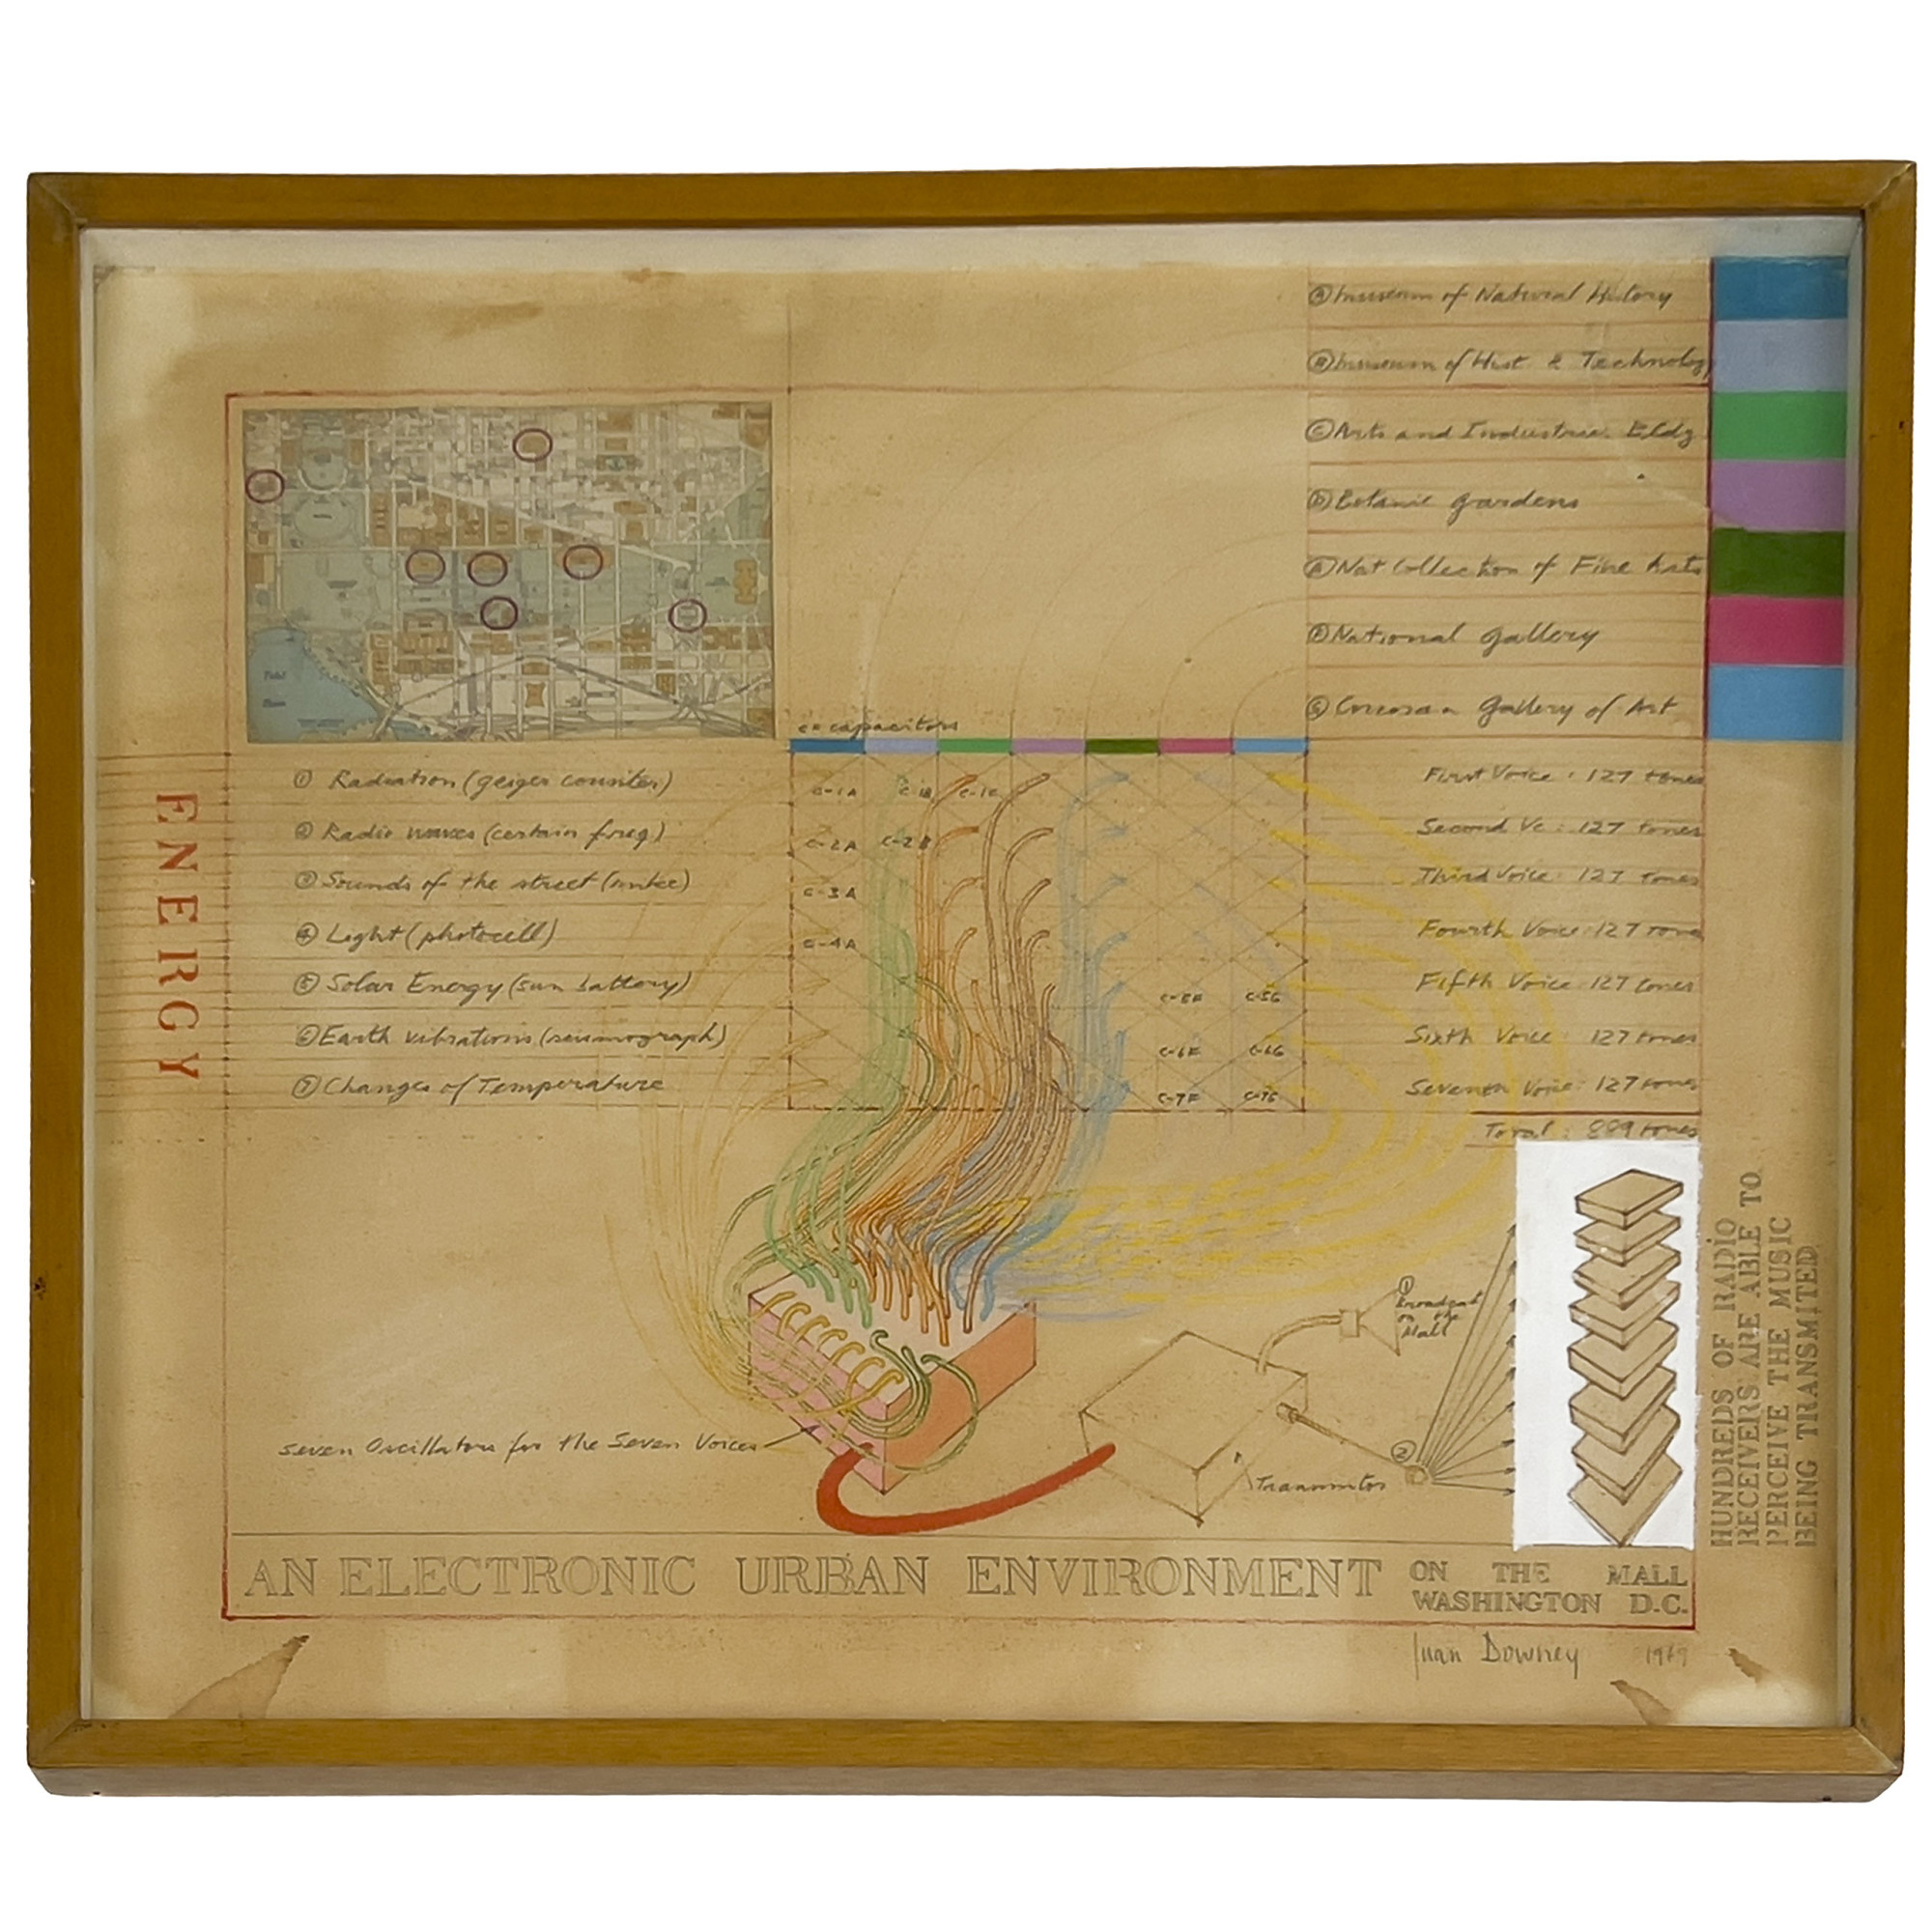 Ⓐ Museum of Natural History
Ⓑ Museum of Hist. & Technology
Ⓒ Arts and Industries Bldg
Ⓓ Botanic gardens
Ⓔ Nat Collection of Fine Arts
Ⓕ National Gallery
Ⓖ Corcoran Gallery of Art
c= capacitors
ENERGY
① Radiation (geiger counter)
② Radio waves (certain freq)
③ Sounds of the street
④ Light (photocell)
⑤ Solar Energy (sun battery)
⑥ Earth vibrations (seismograph)
⑦ Changes of Temperature
C-1A C-1B C-1C
C-2A C-2B
C-3A
C-4A
C-5F C-5G
C-6F C-6G
C-7F C-7G
First Voice: 127 tones
Second Vc: 127 tones
Third Voice: 127 tones
Fourth Voice: 127 tones
Fifth Voice: 127 tones
Sixth Voice: 127 tones
Seventh Voice: 127 tones
Total: 889 tones
① Broadcast
on the
Mall
②
Transmitor
seven Oscillators for the Seven Voices
HUNDREDS OF RADIO
RECEIVERS ARE ABLE TO
PERCEIVE THE MUSIC
BEING TRANSMITED
AN ELECTRONIC URBAN ENVIRONMENT
ON THE MALL
WASHINGTON D.C.
Juan Downey 1969